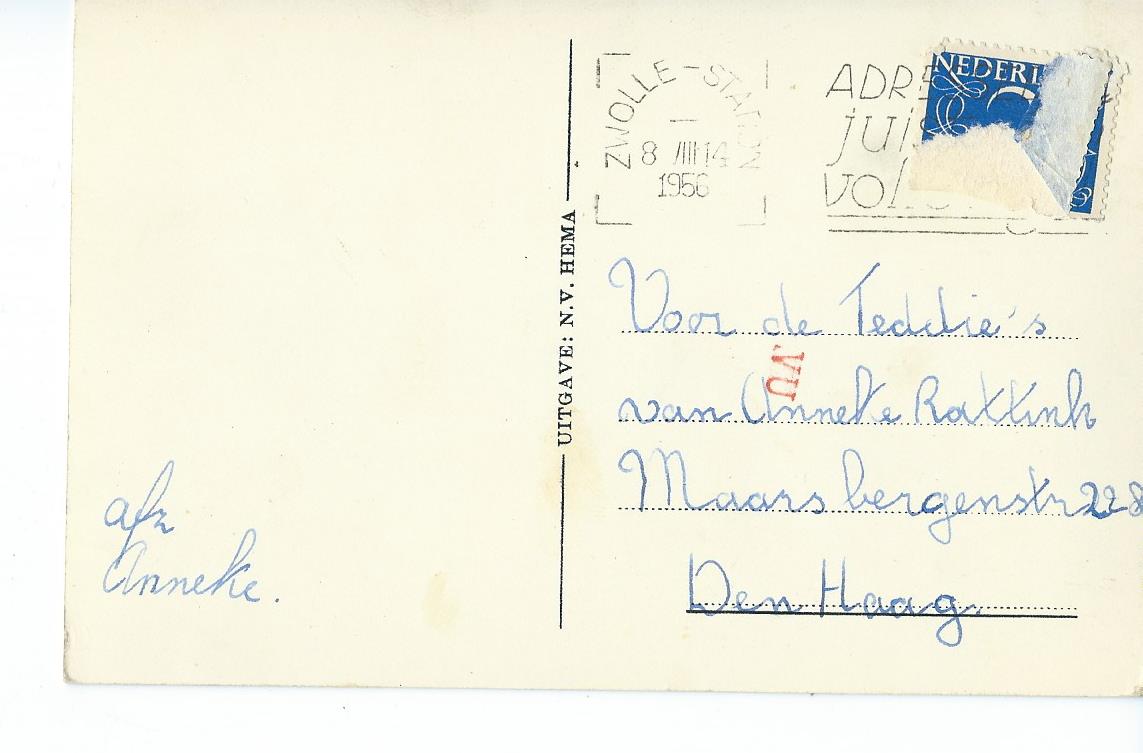 ZWOLLE-STATION
8 VIII 14
1956
ADRE
juis
vol
NEDERL
UITGAVE: N.V. HEMA
Voor de Teddie's
van Anneke Rattink
Maarsbergenstr 228
Den Haag.
VU
afz
Anneke.